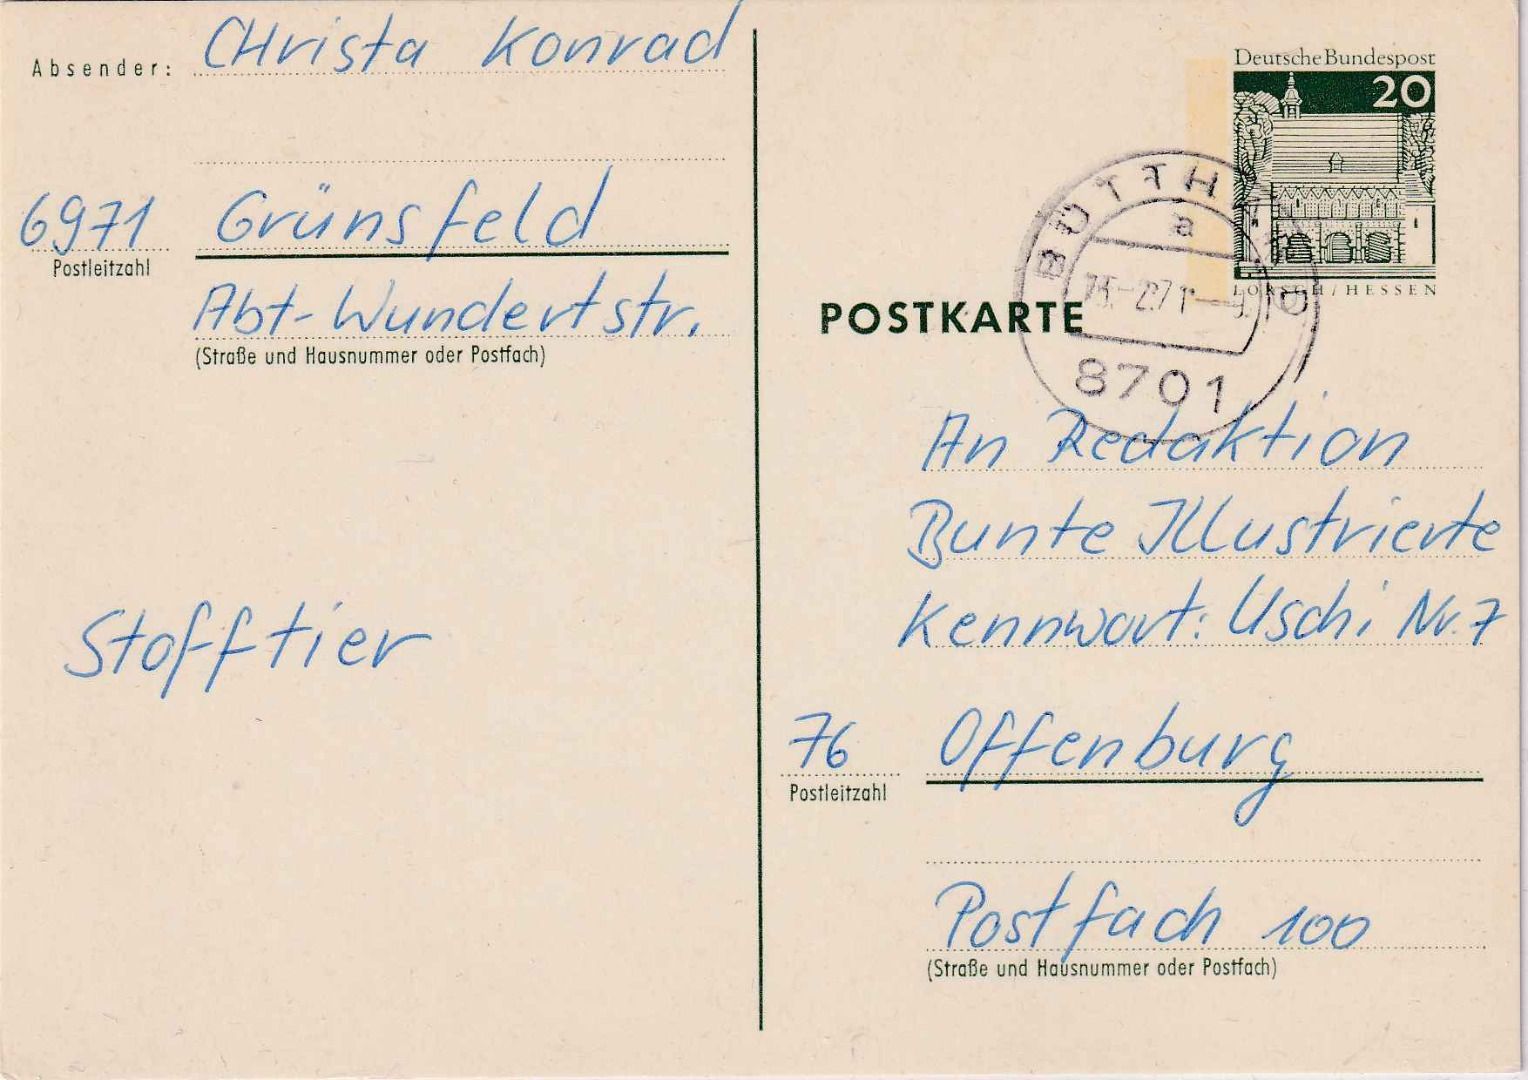 Absender: CHrista Konrad
6971 Grünsfeld
Postleitzahl
Abt-Wundertstr.
(Straße und Hausnummer oder Postfach)
Stofftier
Deutsche Bundespost
20
LORSCH/HESSEN
BÜTTH
a
8701
POSTKARTE
An Redaktion
Bunte Illustrierte
Kennwort: Uschi Nr. 7
76 Offenburg
Postleitzahl
Postfach 100
(Straße und Hausnummer oder Postfach)